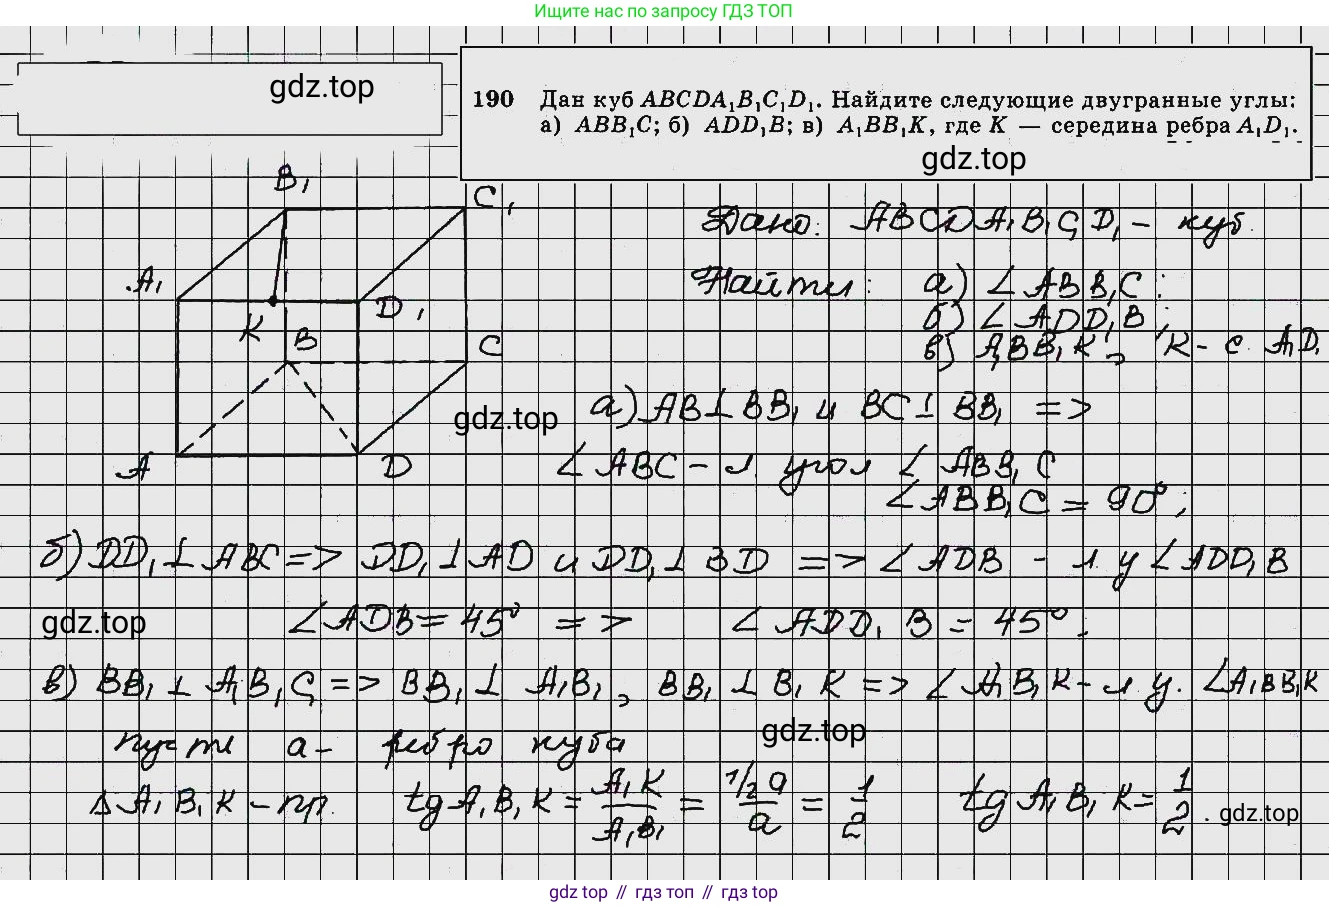 Ищите нас по запросу ГДЗ ТОП
gdz.top
190 Дан куб ABCDA₁B₁C₁D₁. Найдите следующие двугранные углы:
а) ABB₁C; б) ADD₁B; в) A₁BB₁K, где K — середина ребра A₁D₁.
gdz.top
B₁
C₁
A₁
D₁
K
B
C
A
D
gdz.top
Дано: ABCDA₁B₁C₁D₁ - куб
Найти: а) ∠ABB₁C;
б) ∠ADD₁B;
в) A₁BB₁K, K - с. A₁D₁
а) AB⊥BB₁ и BC⊥BB₁ =>
∠ABC - л. угол ∠ABB₁C
∠ABB₁C = 90°;
б) DD₁⊥ABC => DD₁⊥AD и DD₁⊥BD => ∠ADB - л. у ∠ADD₁B
gdz.top
∠ADB = 45° => ∠ADD₁B = 45°.
в) BB₁⊥A₁B₁C₁ => BB₁⊥A₁B₁, BB₁⊥B₁K => ∠A₁B₁K - л. у. ∠A₁BB₁K
gdz.top
пусть a - ребро куба
△A₁B₁K - пр. tg A₁B₁K = A₁K/A₁B₁ = 1/2 a/a = 1/2 tg A₁B₁K = 1/2.
gdz.top
gdz top // гдз топ // gdz top